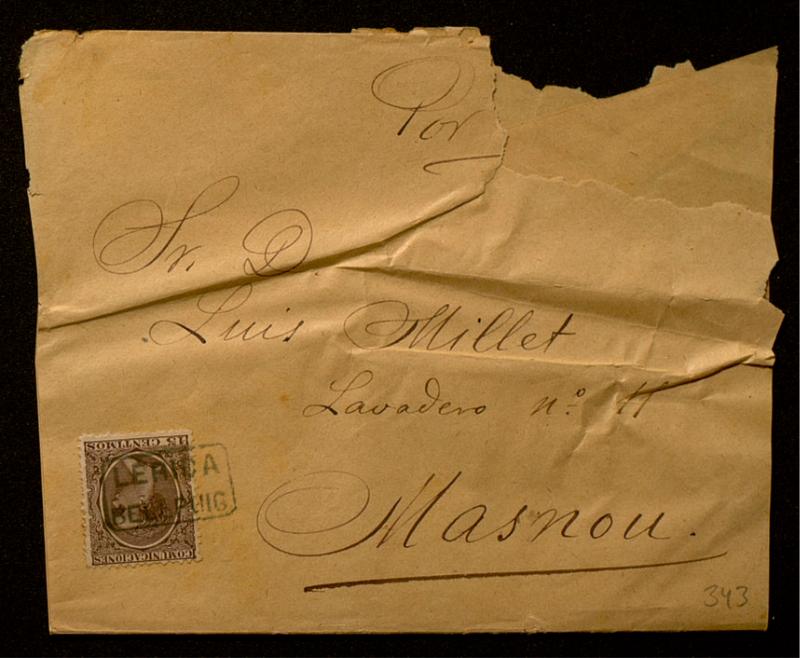 Por
Sr. D.
Luis Millet
Lavadero nº 11
Masnou.
15 CENTIMOS
COMUNICACIONES
LERIDA
BELLPUIG
343